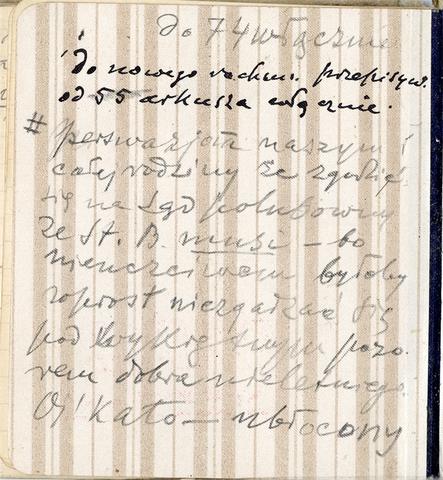 do 74 włącznie
do nowego rachun. przepisyw.
od 55 arkusza włącznie.
# perswazjom naszym i
całej rodziny że zgodzić
się na Sąd polubowny
ze St. B. musi – bo
nieuczciwem byłoby
wprost niezgadzać się
pod wykrętnym pozo
rem dobra nieletniego.
O! Kato – ubłocony